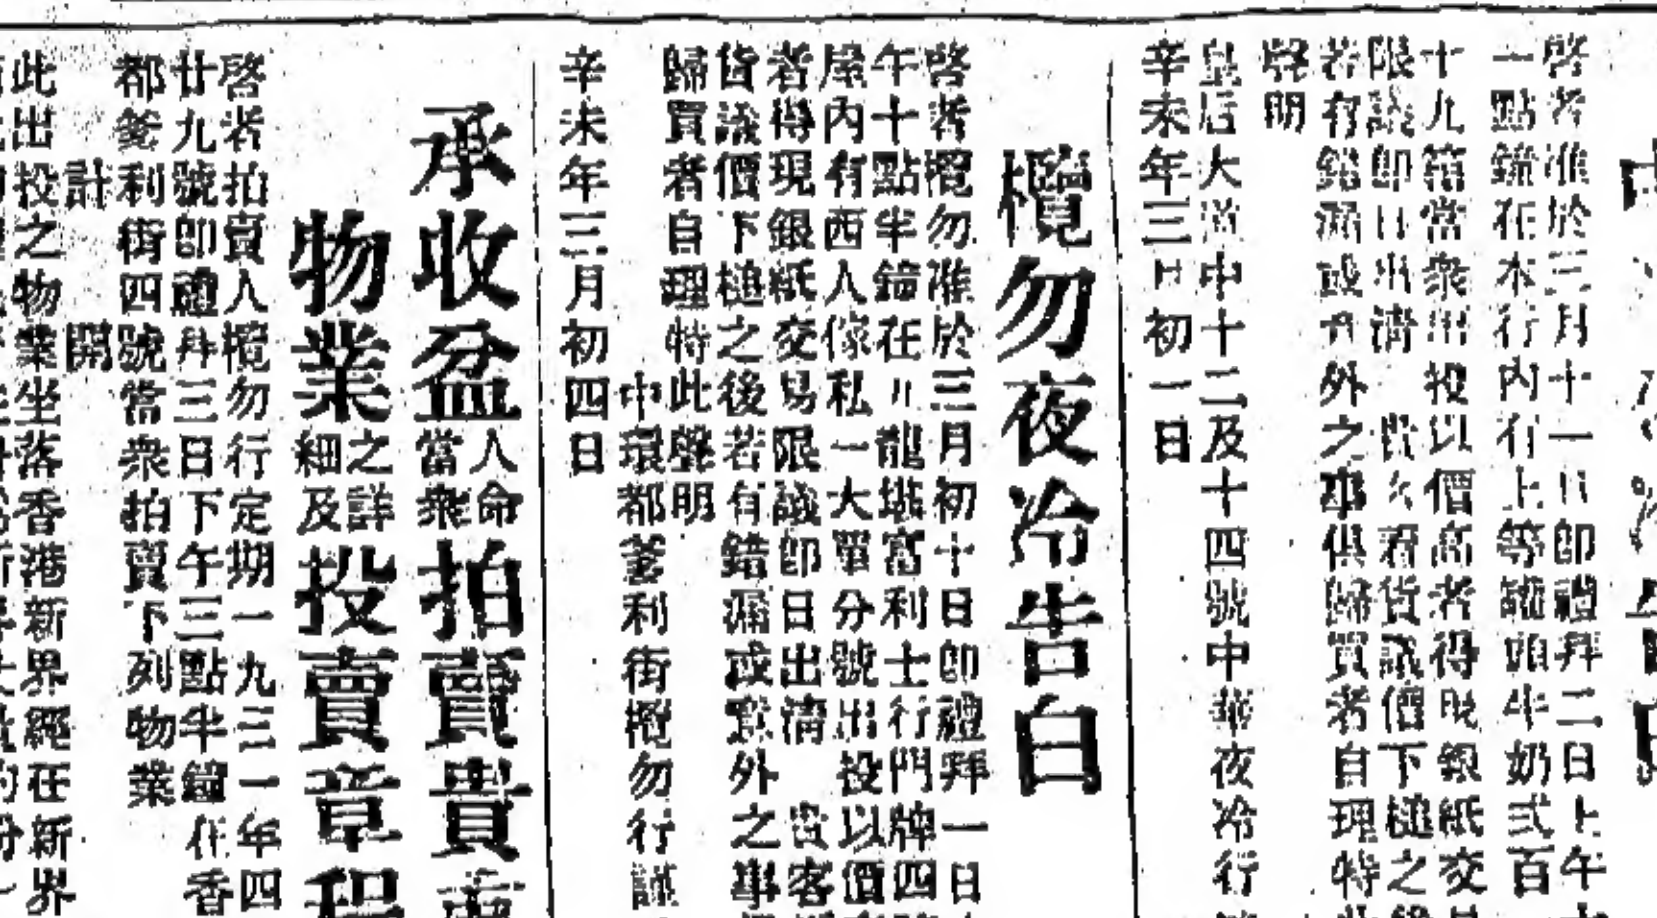 啓者准於三月十一日即禮拜二日上午
一點鐘在本行內有上等罐頭牛奶弍百
十九箱當衆出投以價高者得現銀紙交
限議即日出清 貴客看貨議價下槌之
若有錯漏或意外之事俱歸買者自理特
聲明
皇后大道中十二及十四號中華夜冷行
辛未年三月初一日
欖勿夜冷告白
啓者欖勿准於三月初十日即禮拜一日
午十點半鐘在九龍堪富利士行門牌四
屋內有西人傢私一大單分號出投以價
者得現銀紙交易限議即日出清 貴客
貨議價下槌之後若有錯漏或意外之事
歸買者自理特此聲明
中環都爹利街欖勿行謹
辛未年三月初四日
承收盆人命當衆拍賣貴重
物業之詳細及投賣章程
啓者拍賣人欖勿行定期一九三一年四
廿九號即禮拜三日下午三點半鐘在香
都爹利街四號當衆拍賣下列物業
計 開
此出投之物業坐落香港新界經在新界